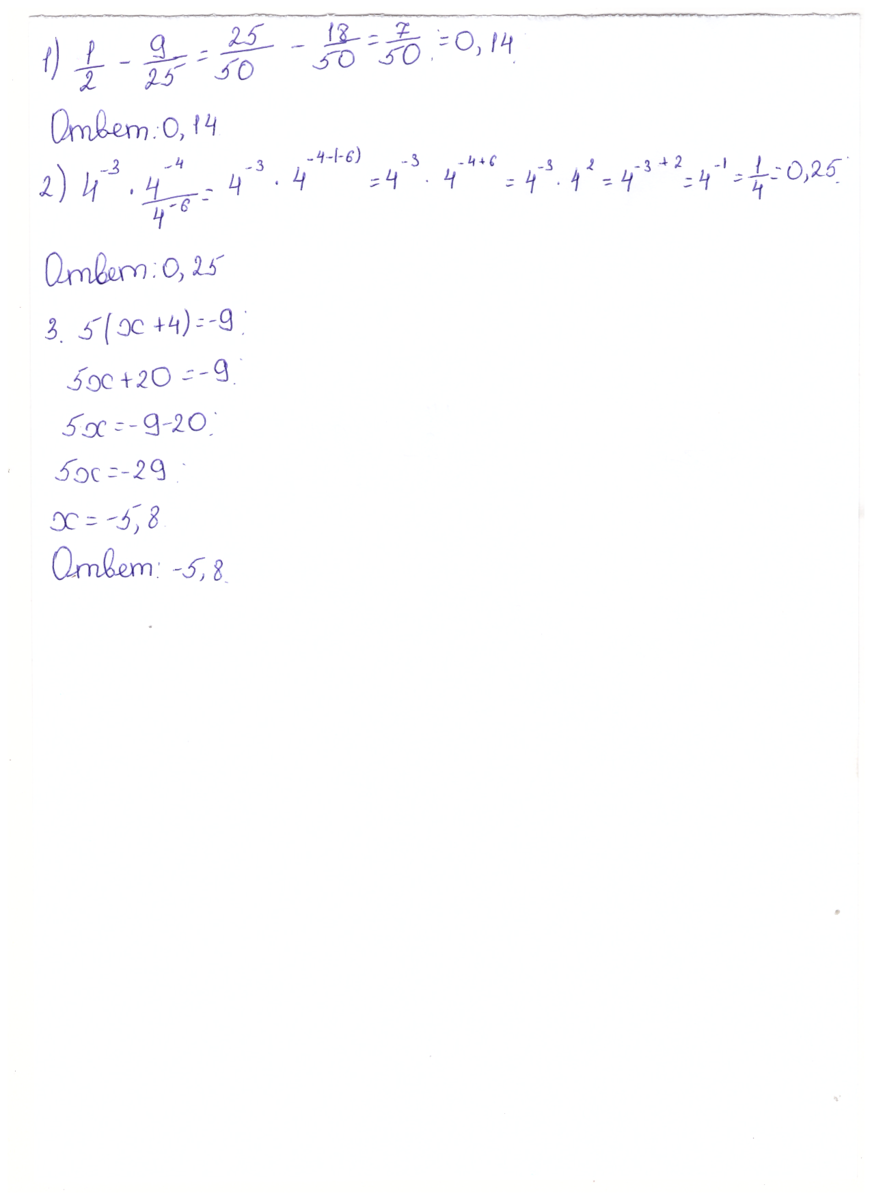 1) 1/2 - 9/25 = 25/50 - 18/50 = 7/50 = 0,14
Ответ: 0,14
2) 4⁻³ · 4⁻⁴/4⁻⁶ = 4⁻³ · 4⁻⁴⁻⁽⁻⁶⁾ = 4⁻³ · 4⁻⁴⁺⁶ = 4⁻³ · 4² = 4⁻³⁺² = 4⁻¹ = 1/4 = 0,25.
Ответ: 0,25
3. 5(x+4)=-9;
5x+20=-9;
5x=-9-20;
5x=-29;
x=-5,8
Ответ: -5,8.